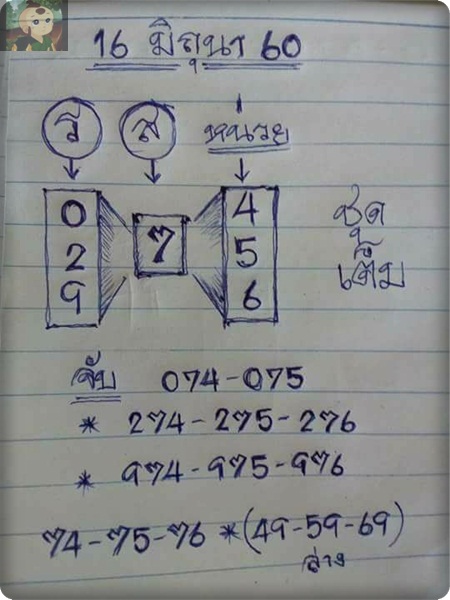 16 มิถุนา 60
ร ส หน่วย
0 7 4
2 5
9 6
ชุด
เต็ม
จับ 074-075
* 274-275-276
* 974-975-976
74-75-76 *(49-59-69)
ล่าง